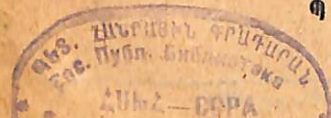 ՊԵՏ. ՀԱՆՐԱՅԻՆ ԳՐԱԴԱՐԱՆ
Гос. Публ. Библиотека
ՀՍԽՀ — ССРА